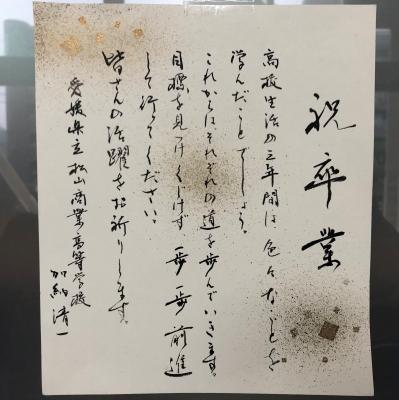 祝卒業
高校生活の三年間は色々なことを
学んだことでしょう。
これからはそれぞれの道を歩んでいきます。
目標を見つけくじけず一歩一歩前進
して行ってください。
皆さんの活躍をお祈りします。
愛媛県立松山商業高等学校
加納清一